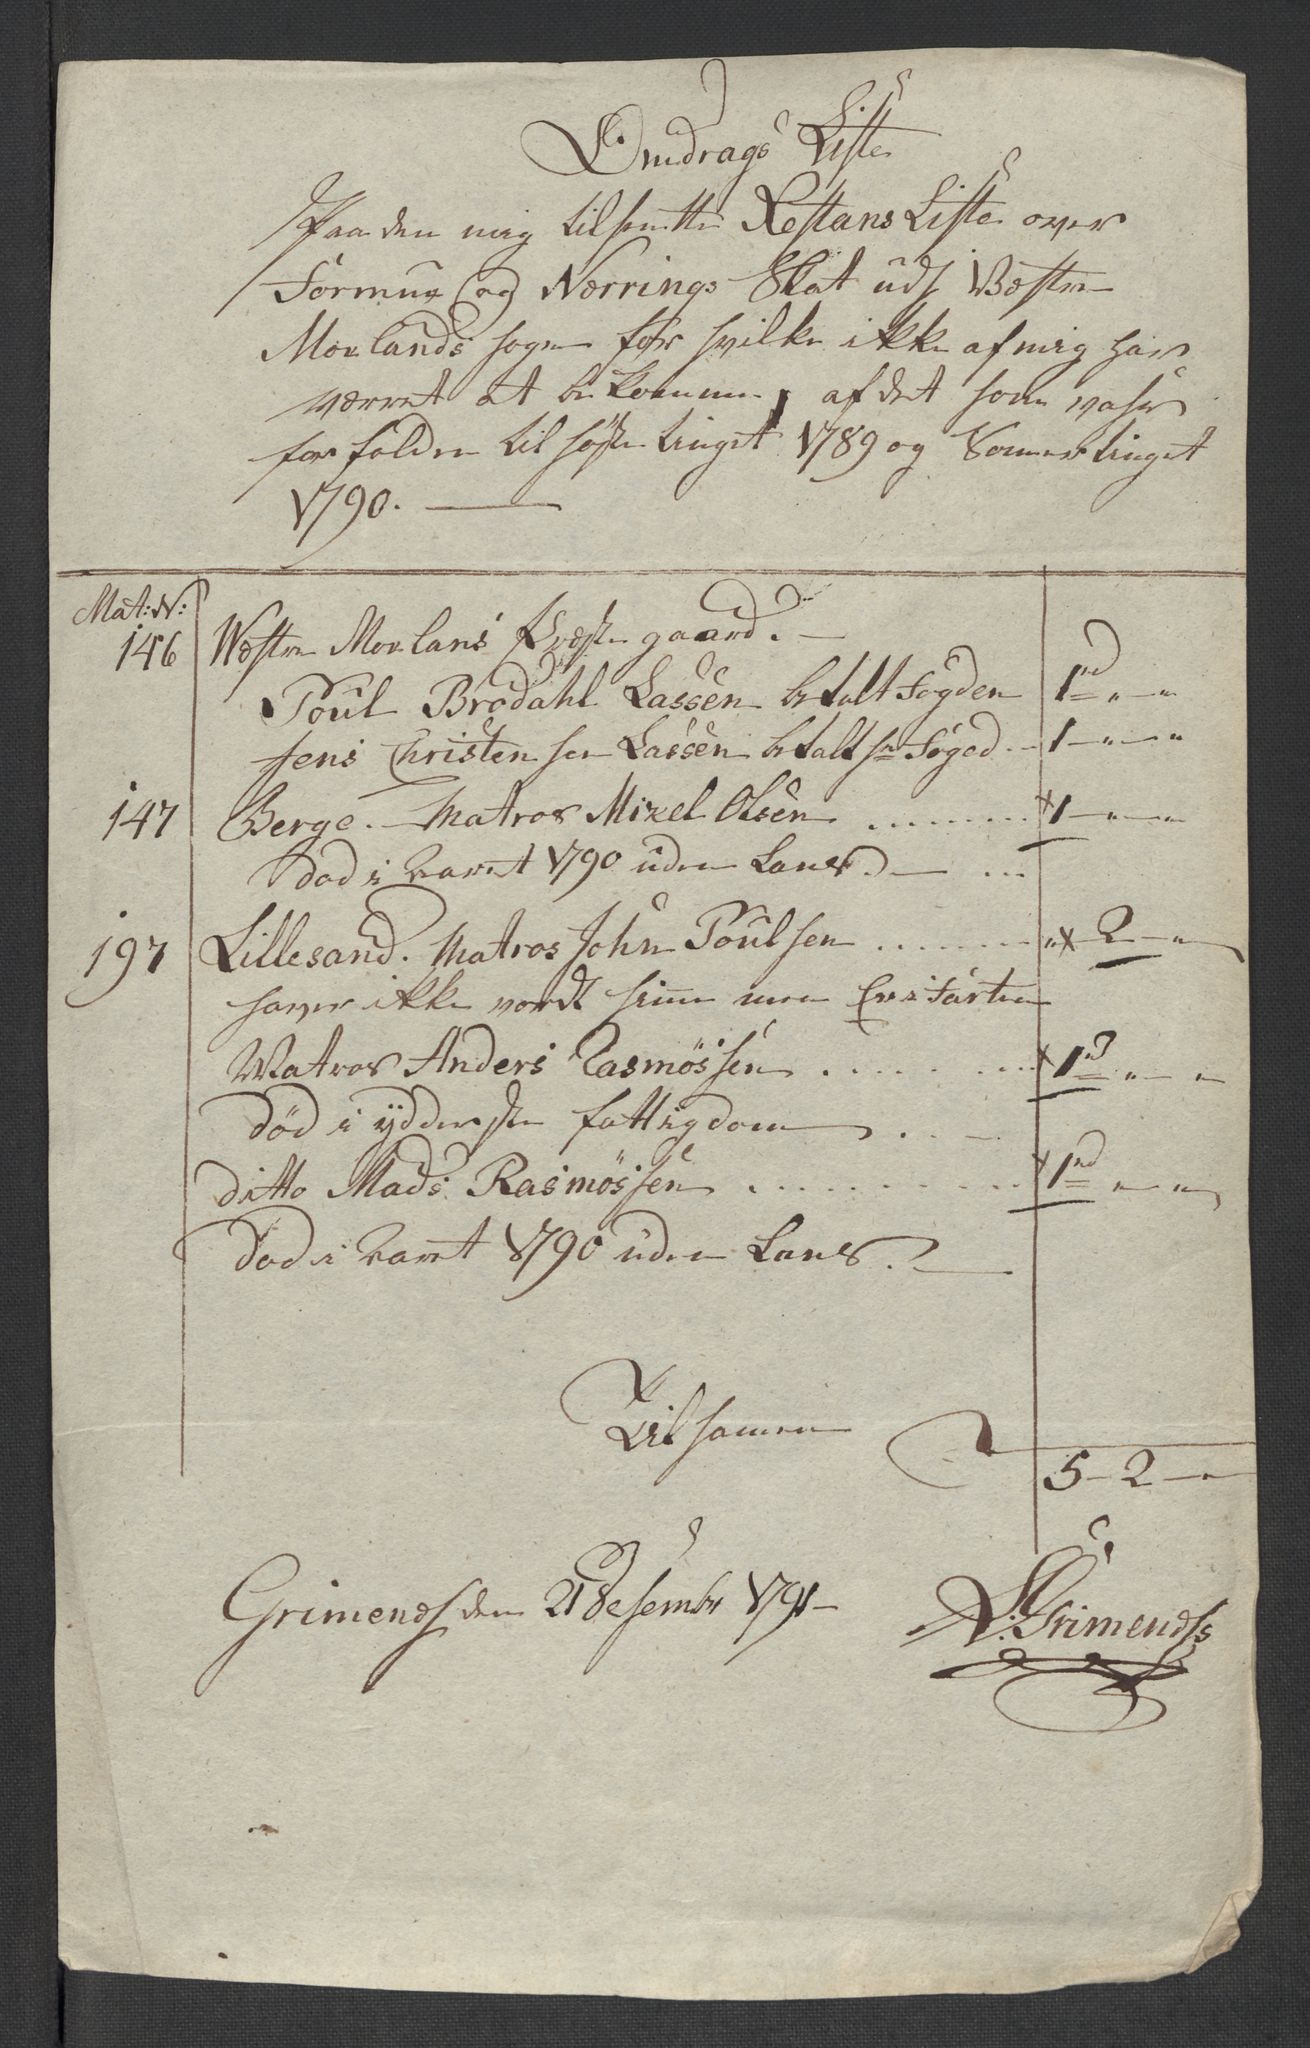 Omdrags Liste
Paa den mig tilsentte Restans Liste over
Formue og Nerrings Skat udj Vestre
Moelands sogn for hvilke ikke af mig har
værret at bekomme, af det som vaser
forfolden til høste tinget 1789 og Sommertinget
1790.
Mat: N:
146 Westre Moelans Præste gaard. —
Poul Brodahl Lassen betalt Fogden 1 rd „ — „
Jens Christensen Lassen betalt hr Foged 1 — „ — „
147 Berge. Matros Mikel Olsen ........ x 1 — „ — „
død i Aaret 1790 uden Laans. —
197 Lillesand. Matros John Poulsen ........ „ x 2 — „
haver ikke vordt hime men
Matros Anders Rasmøssen ........ x 1 rd „ — „
død i ydderste fattigdom
ditto Mads Rasmøssen ........ x 1 rd „ — „
død i Aaret 1790 uden Laans. —
Tilsamen
5 — 2 — „
Grimends den 21 desembr 1791
N: Grimends